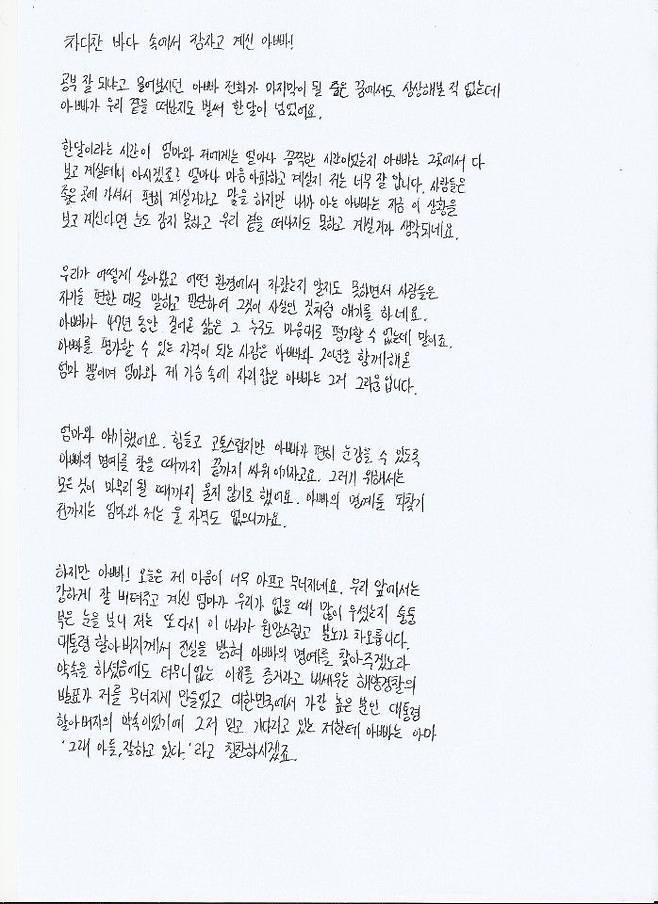 차디찬 바다 속에서 잠자고 계신 아빠!
공부 잘 되냐고 물어보시던 아빠 전화가 마지막이 될 줄은 꿈에서도 상상해본 적 없는데
아빠가 우리 곁을 떠난지도 벌써 한달이 넘었어요.
한달이라는 시간이 엄마와 저에게는 얼마나 끔찍한 시간이었는지 아빠는 그곳에서 다
보고 계실테니 아시겠죠? 얼마나 마음 아파하고 계실지 저는 너무 잘 압니다. 사람들은
좋은 곳에 가셔서 편히 계실거라고 말을 하지만 내가 아는 아빠는 지금 이 상황을
보고 계신다면 눈도 감지 못하고 우리 곁을 떠나지도 못하고 계실거라 생각되네요.
우리가 어떻게 살아왔고 어떤 환경에서 자랐는지 알지도 못하면서 사람들은
자기들 편한 대로 말하고 판단하여 그것이 사실인 것처럼 얘기를 하네요.
아빠가 47년 동안 걸어온 삶은 그 누구도 마음대로 평가할 수 없는데 말이죠.
아빠를 평가할 수 있는 자격이 되는 사람은 아빠와 20년을 함께해온
엄마 뿐이며 엄마와 제 가슴 속에 자리잡은 아빠는 그저 그리움입니다.
엄마와 얘기했어요. 힘들고 고통스럽지만 아빠가 편히 눈감을 수 있도록
아빠의 명예를 찾을 때까지 끝까지 싸워 이기자고요. 그러기 위해서는
모든 것이 마무리 될 때까지 울지 않기로 했어요. 아빠의 명예를 되찾기
전까지는 엄마와 저는 울 자격도 없으니까요.
하지만 아빠! 오늘은 제 마음이 너무 아프고 무너지네요. 우리 앞에서는
강하게 잘 버텨주고 계신 엄마가 우리가 없을 때 많이 우셨는지 퉁퉁
부은 눈을 보니 저는 또다시 이 나라가 원망스럽고 분노가 차오릅니다.
대통령 할아버지께서 진실을 밝혀 아빠의 명예를 찾아주겠노라
약속을 하셨음에도 터무니없는 이유를 증거라고 내세우는 해양경찰의
발표가 저를 무너지게 만들었고 대한민국에서 가장 높은 분인 대통령
할아버지의 약속이었기에 그저 믿고 기다리고 있는 저한테 아빠는 아마
'그래 아들, 잘하고 있다.' 라고 칭찬하시겠죠.